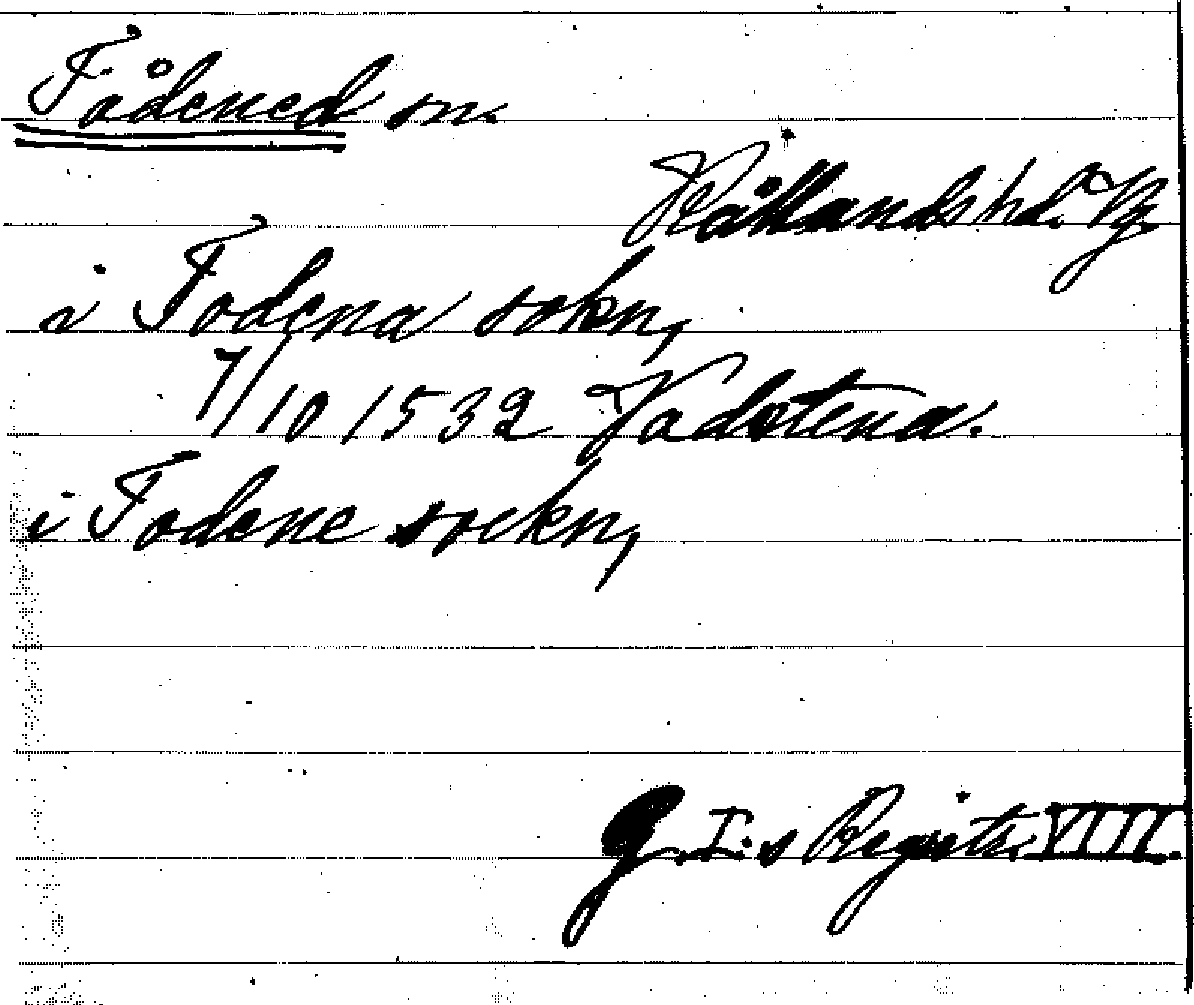 Fådened sn.
Kållands hd. Vg.
i Fodena sokn,
7/10 1532 Vadstena.
i Fodene sockn,
G. I:s Registr. VIII.